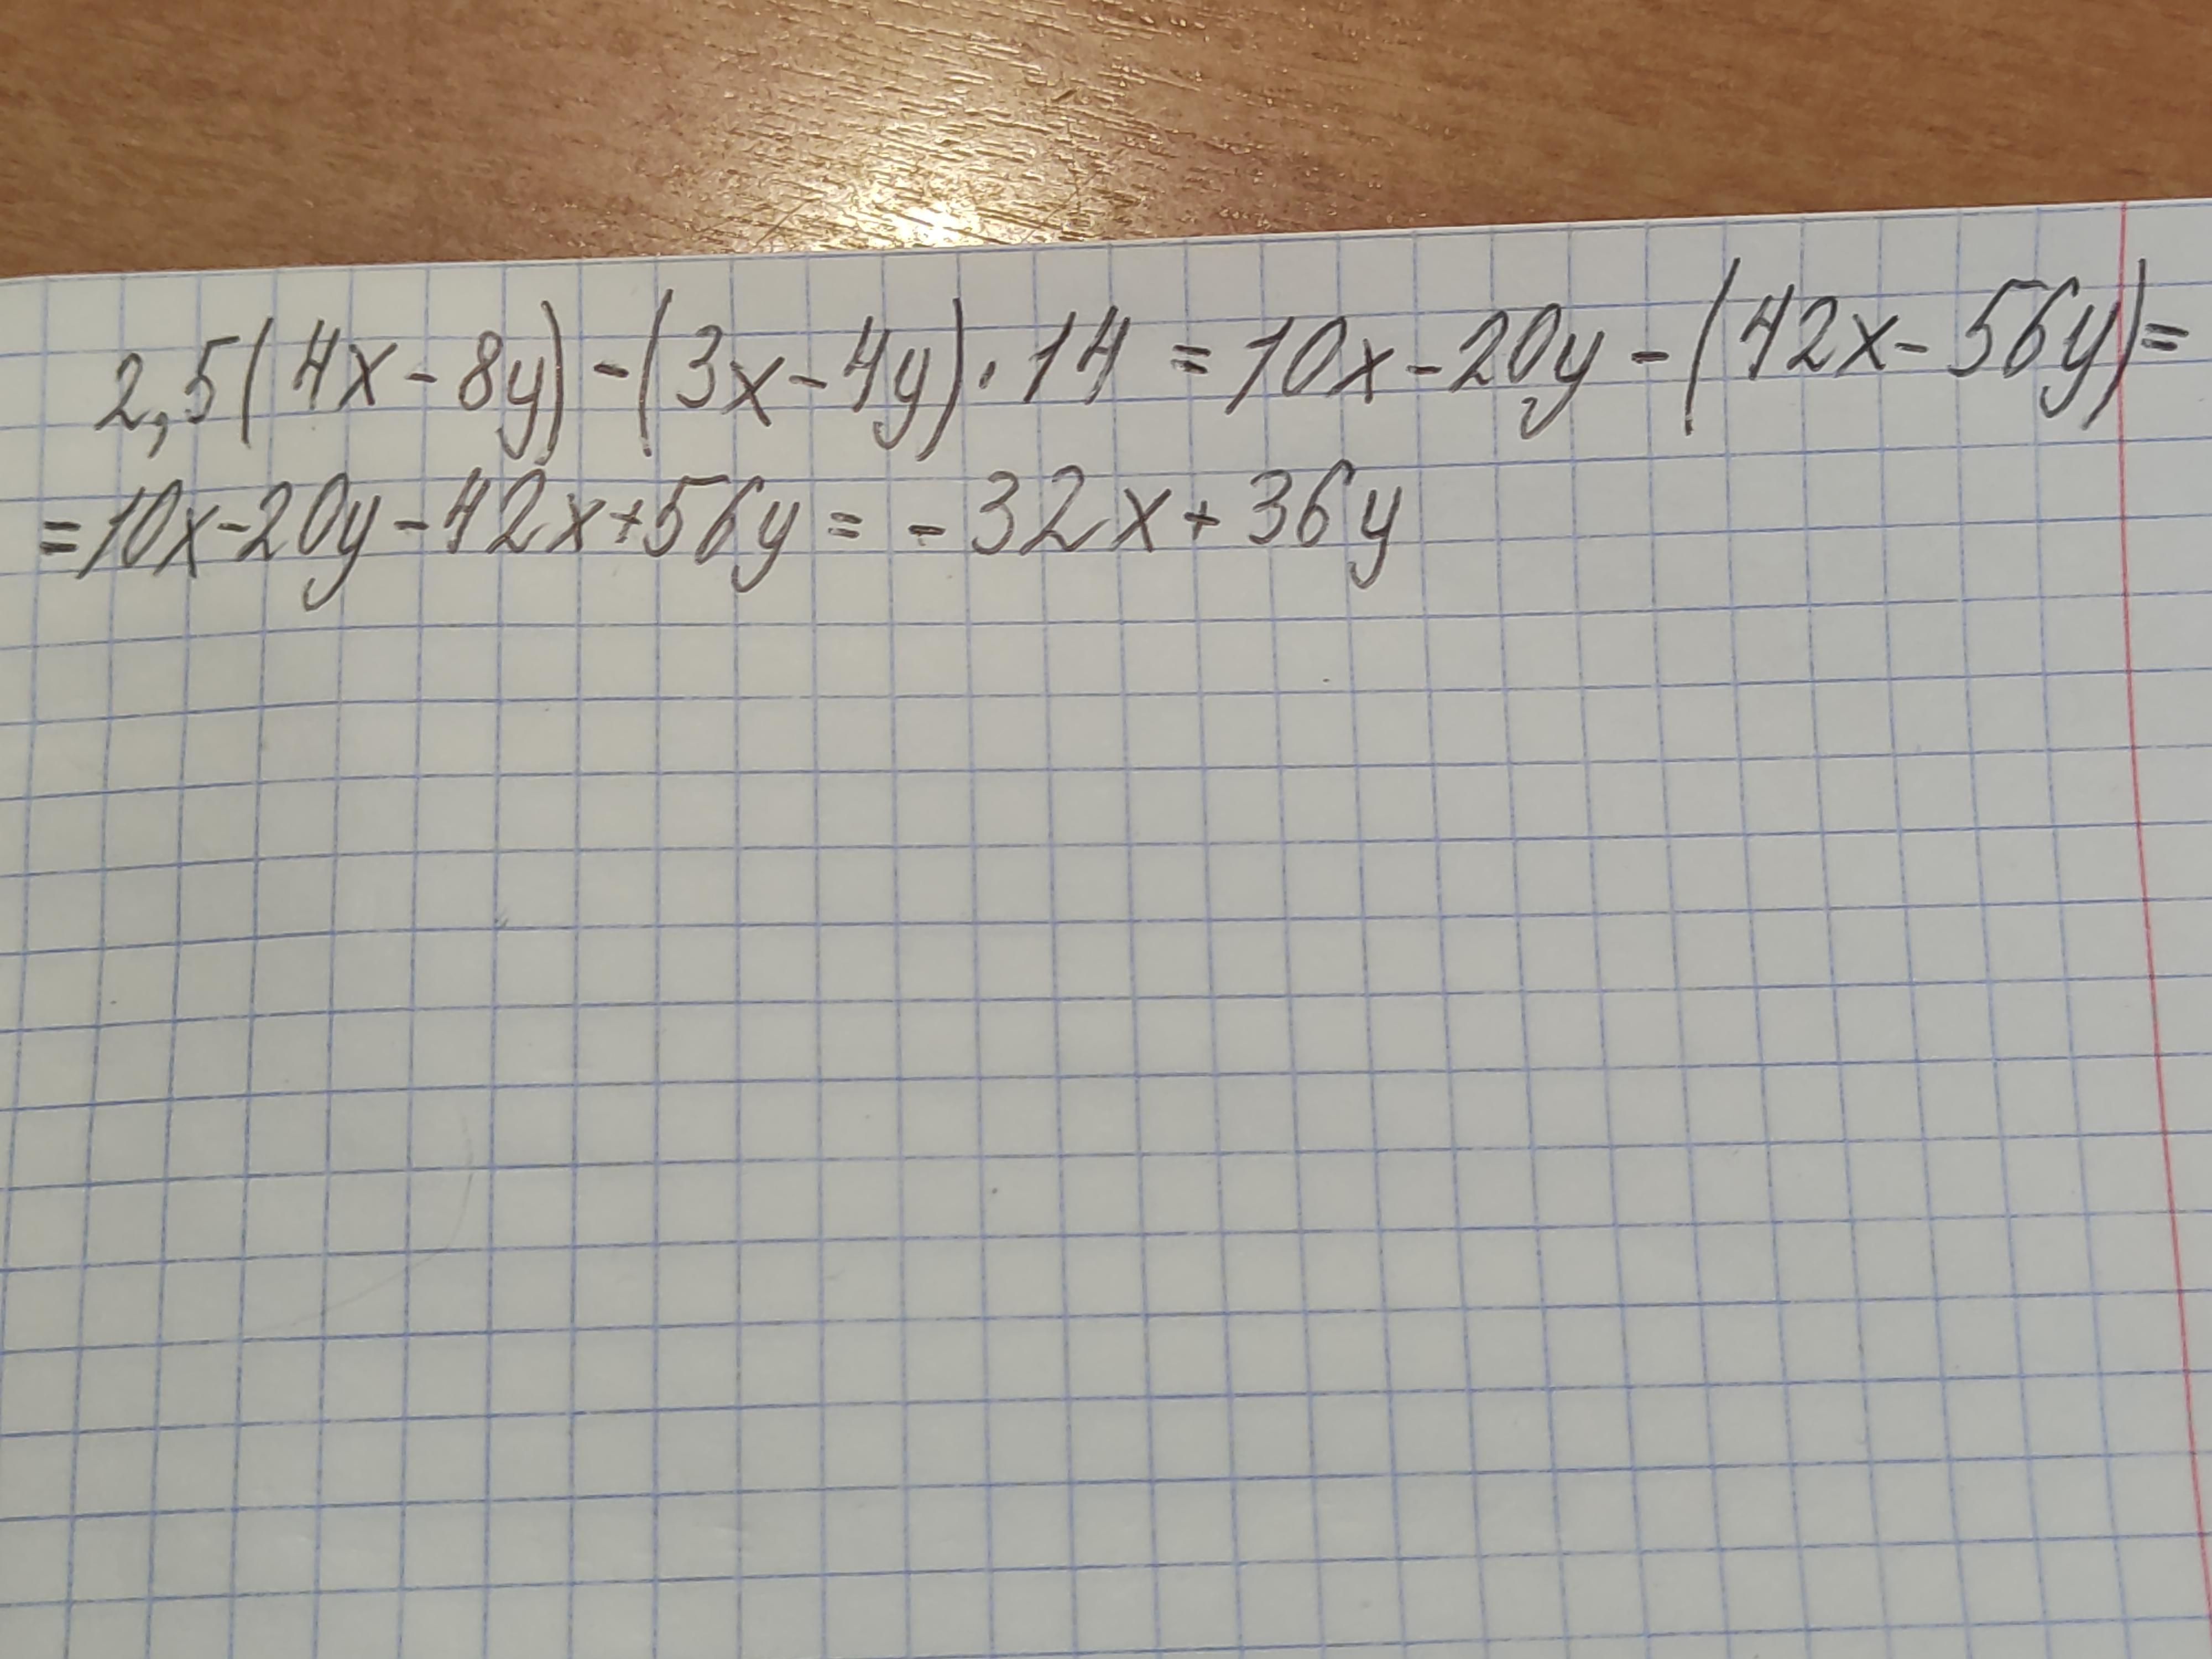 2,5(4x-8y)-(3x-4y)·14=10x-20y-(42x-56y)=
=10x-20y-42x+56y=-32x+36y